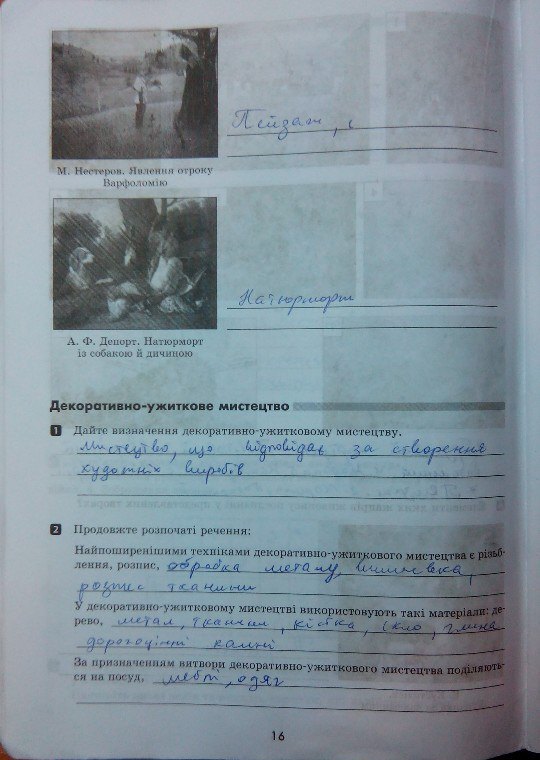 Пейзаж,
М. Нестеров. Явлення отроку
Варфоломію
Натюрморт
А. Ф. Депорт. Натюрморт
із собакою й дичиною
Декоративно-ужиткове мистецтво
1 Дайте визначення декоративно-ужитковому мистецтву.
Мистецтво, що відповідає за створення
художніх виробів
2 Продовжте розпочаті речення:
Найпоширенішими техніками декоративно-ужиткового мистецтва є різьб-
лення, розпис, обробка металу, вишивка,
розпис тканини
У декоративно-ужитковому мистецтві використовують такі матеріали: де-
рево, метал, тканина, кістка, скло, глина
дорогоцінні камні
За призначенням витвори декоративно-ужиткового мистецтва поділяють-
ся на посуд, меблі, одяг
16